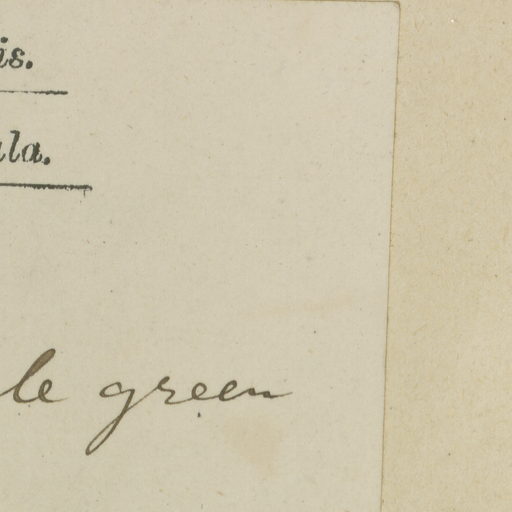 is.
ula.
le green